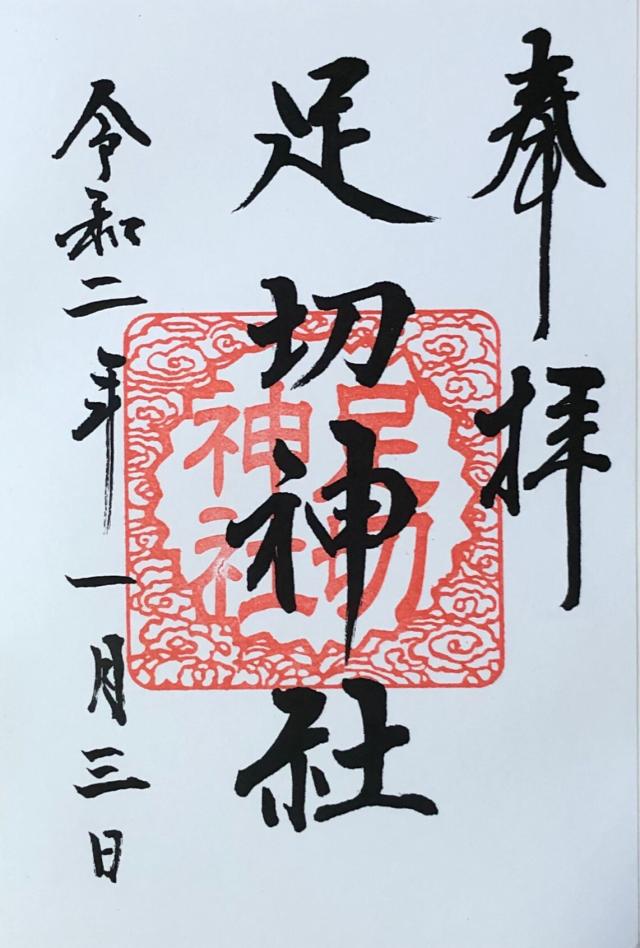 奉拝
足切神社
足切
神社
令和二年一月三日